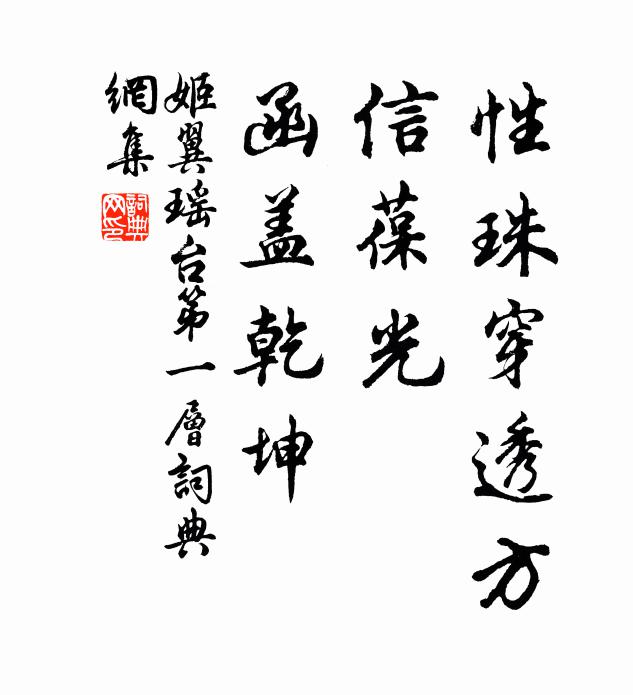 性珠穿透方
信葆光
函盖乾坤
姬翼瑶台第一層詞典
網集
詞典网印